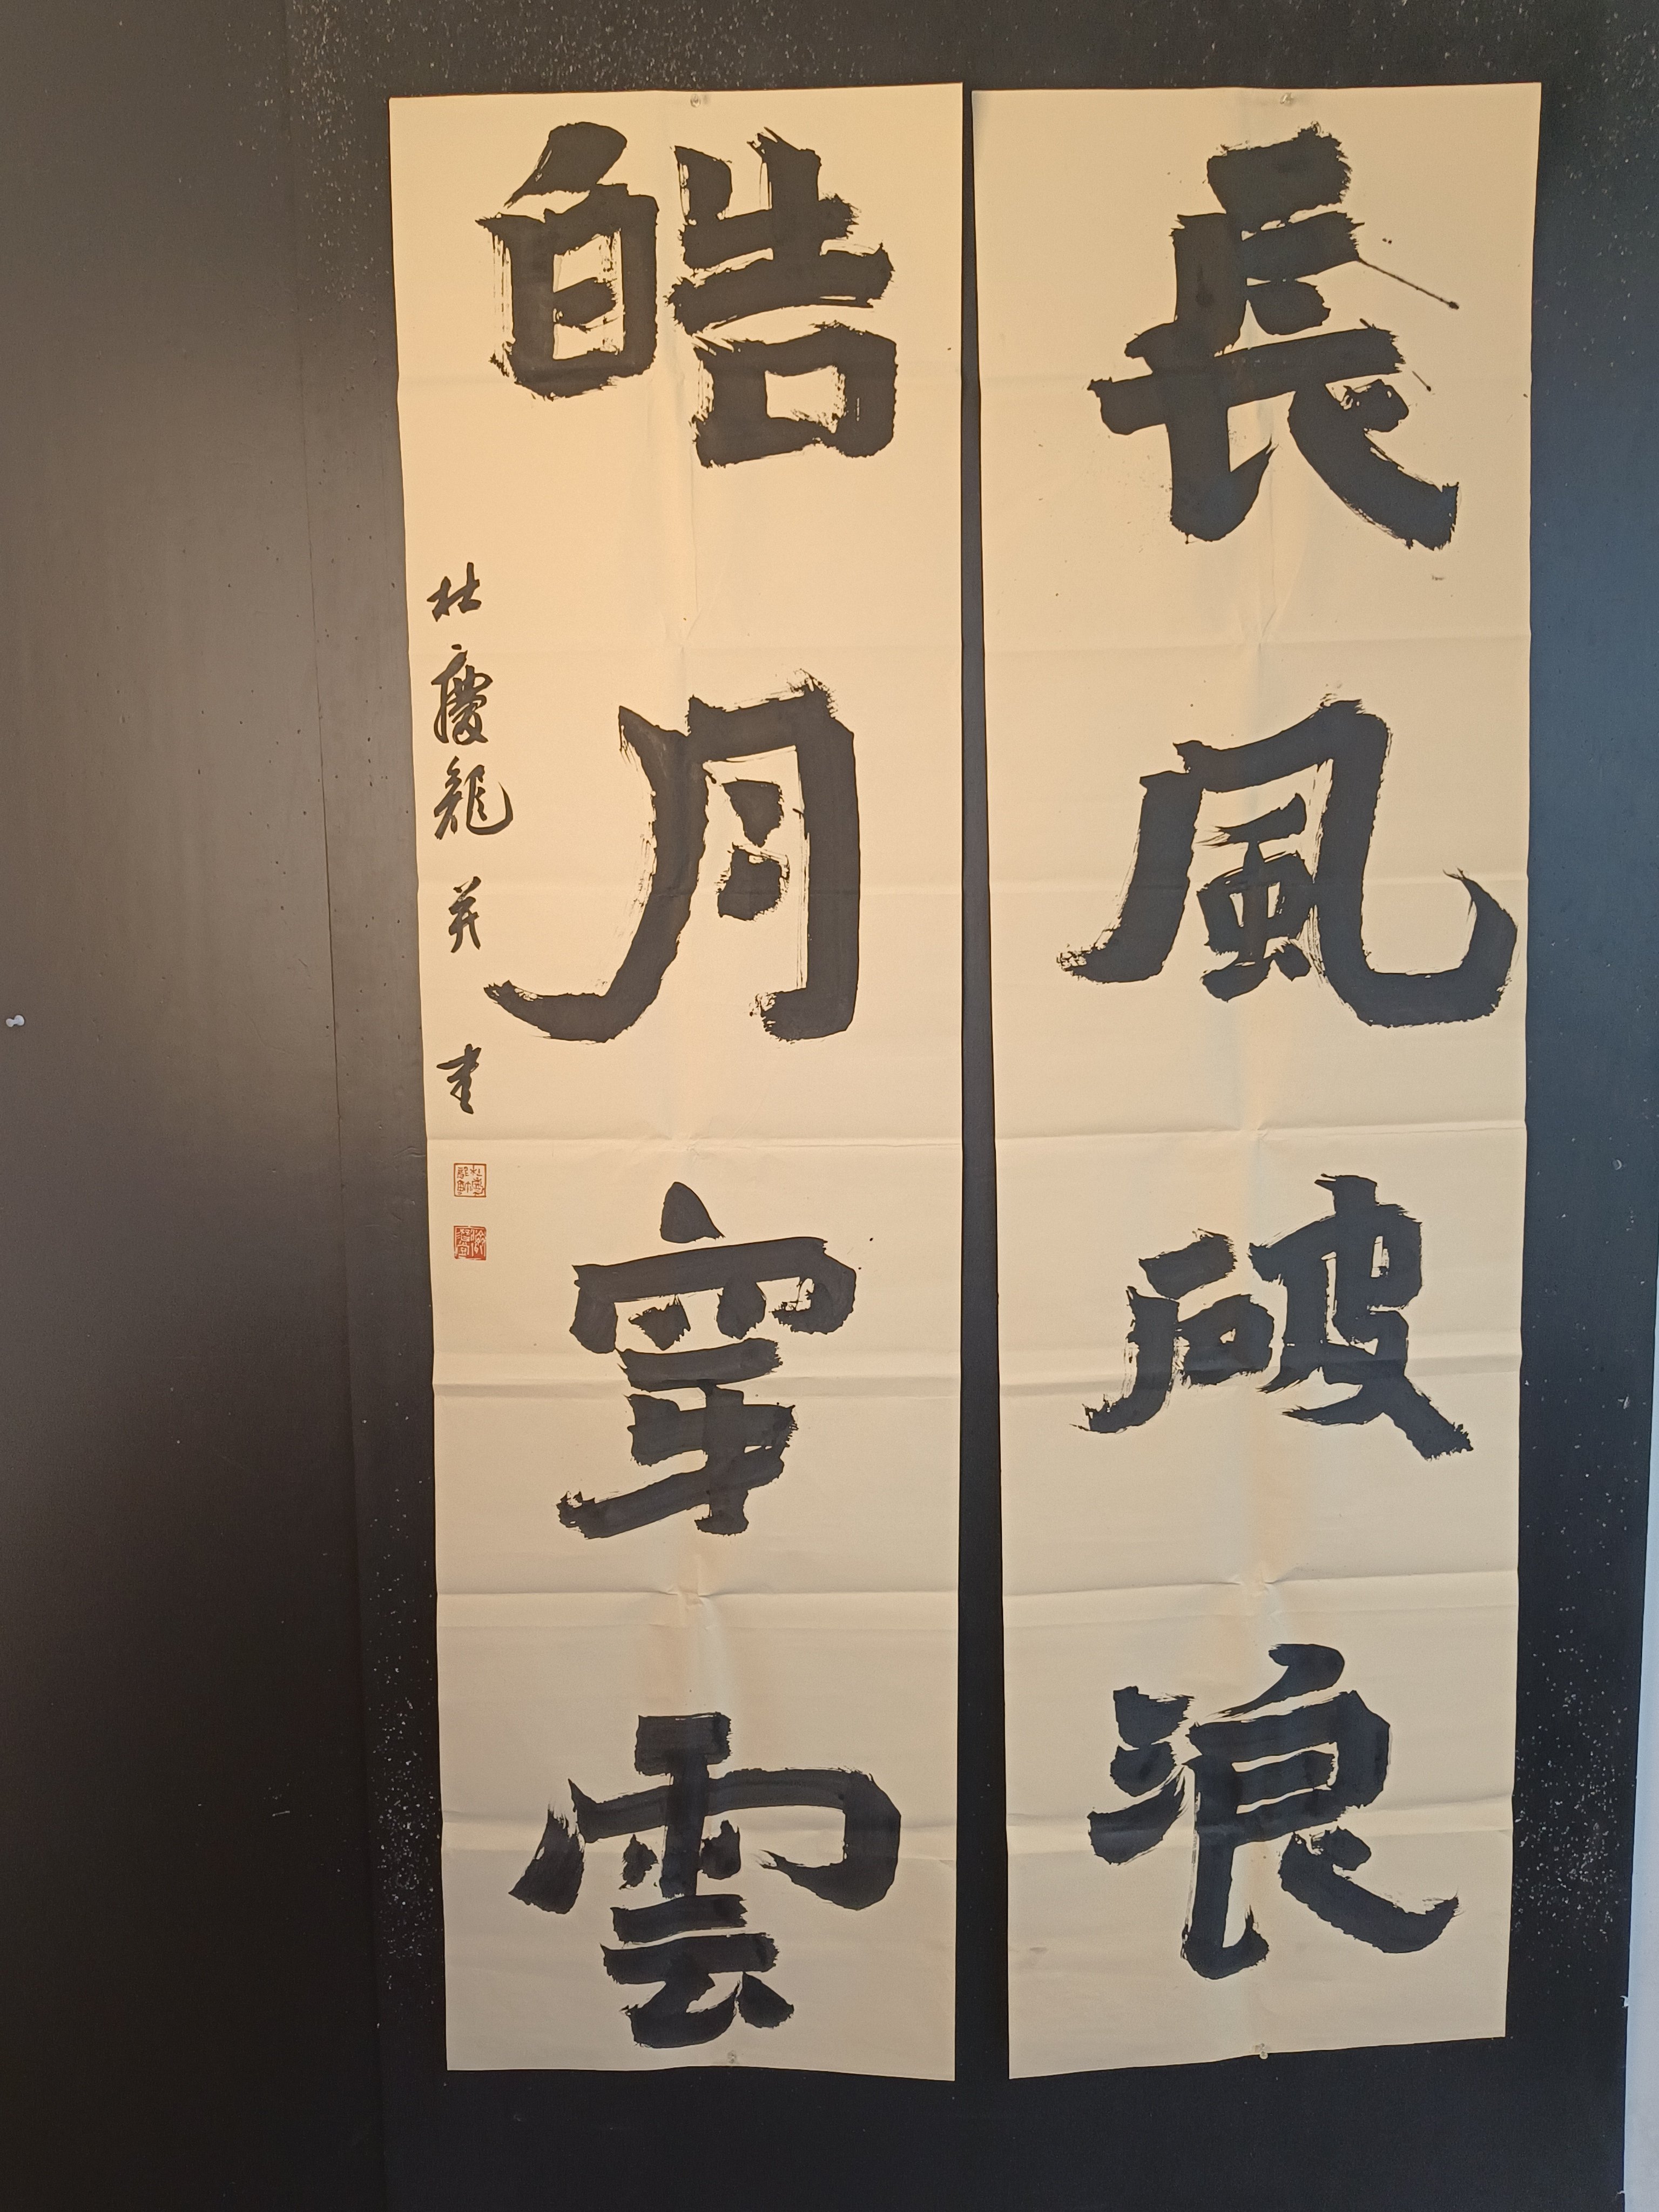 長風破浪
皓月穿雲
杜慶龍並書